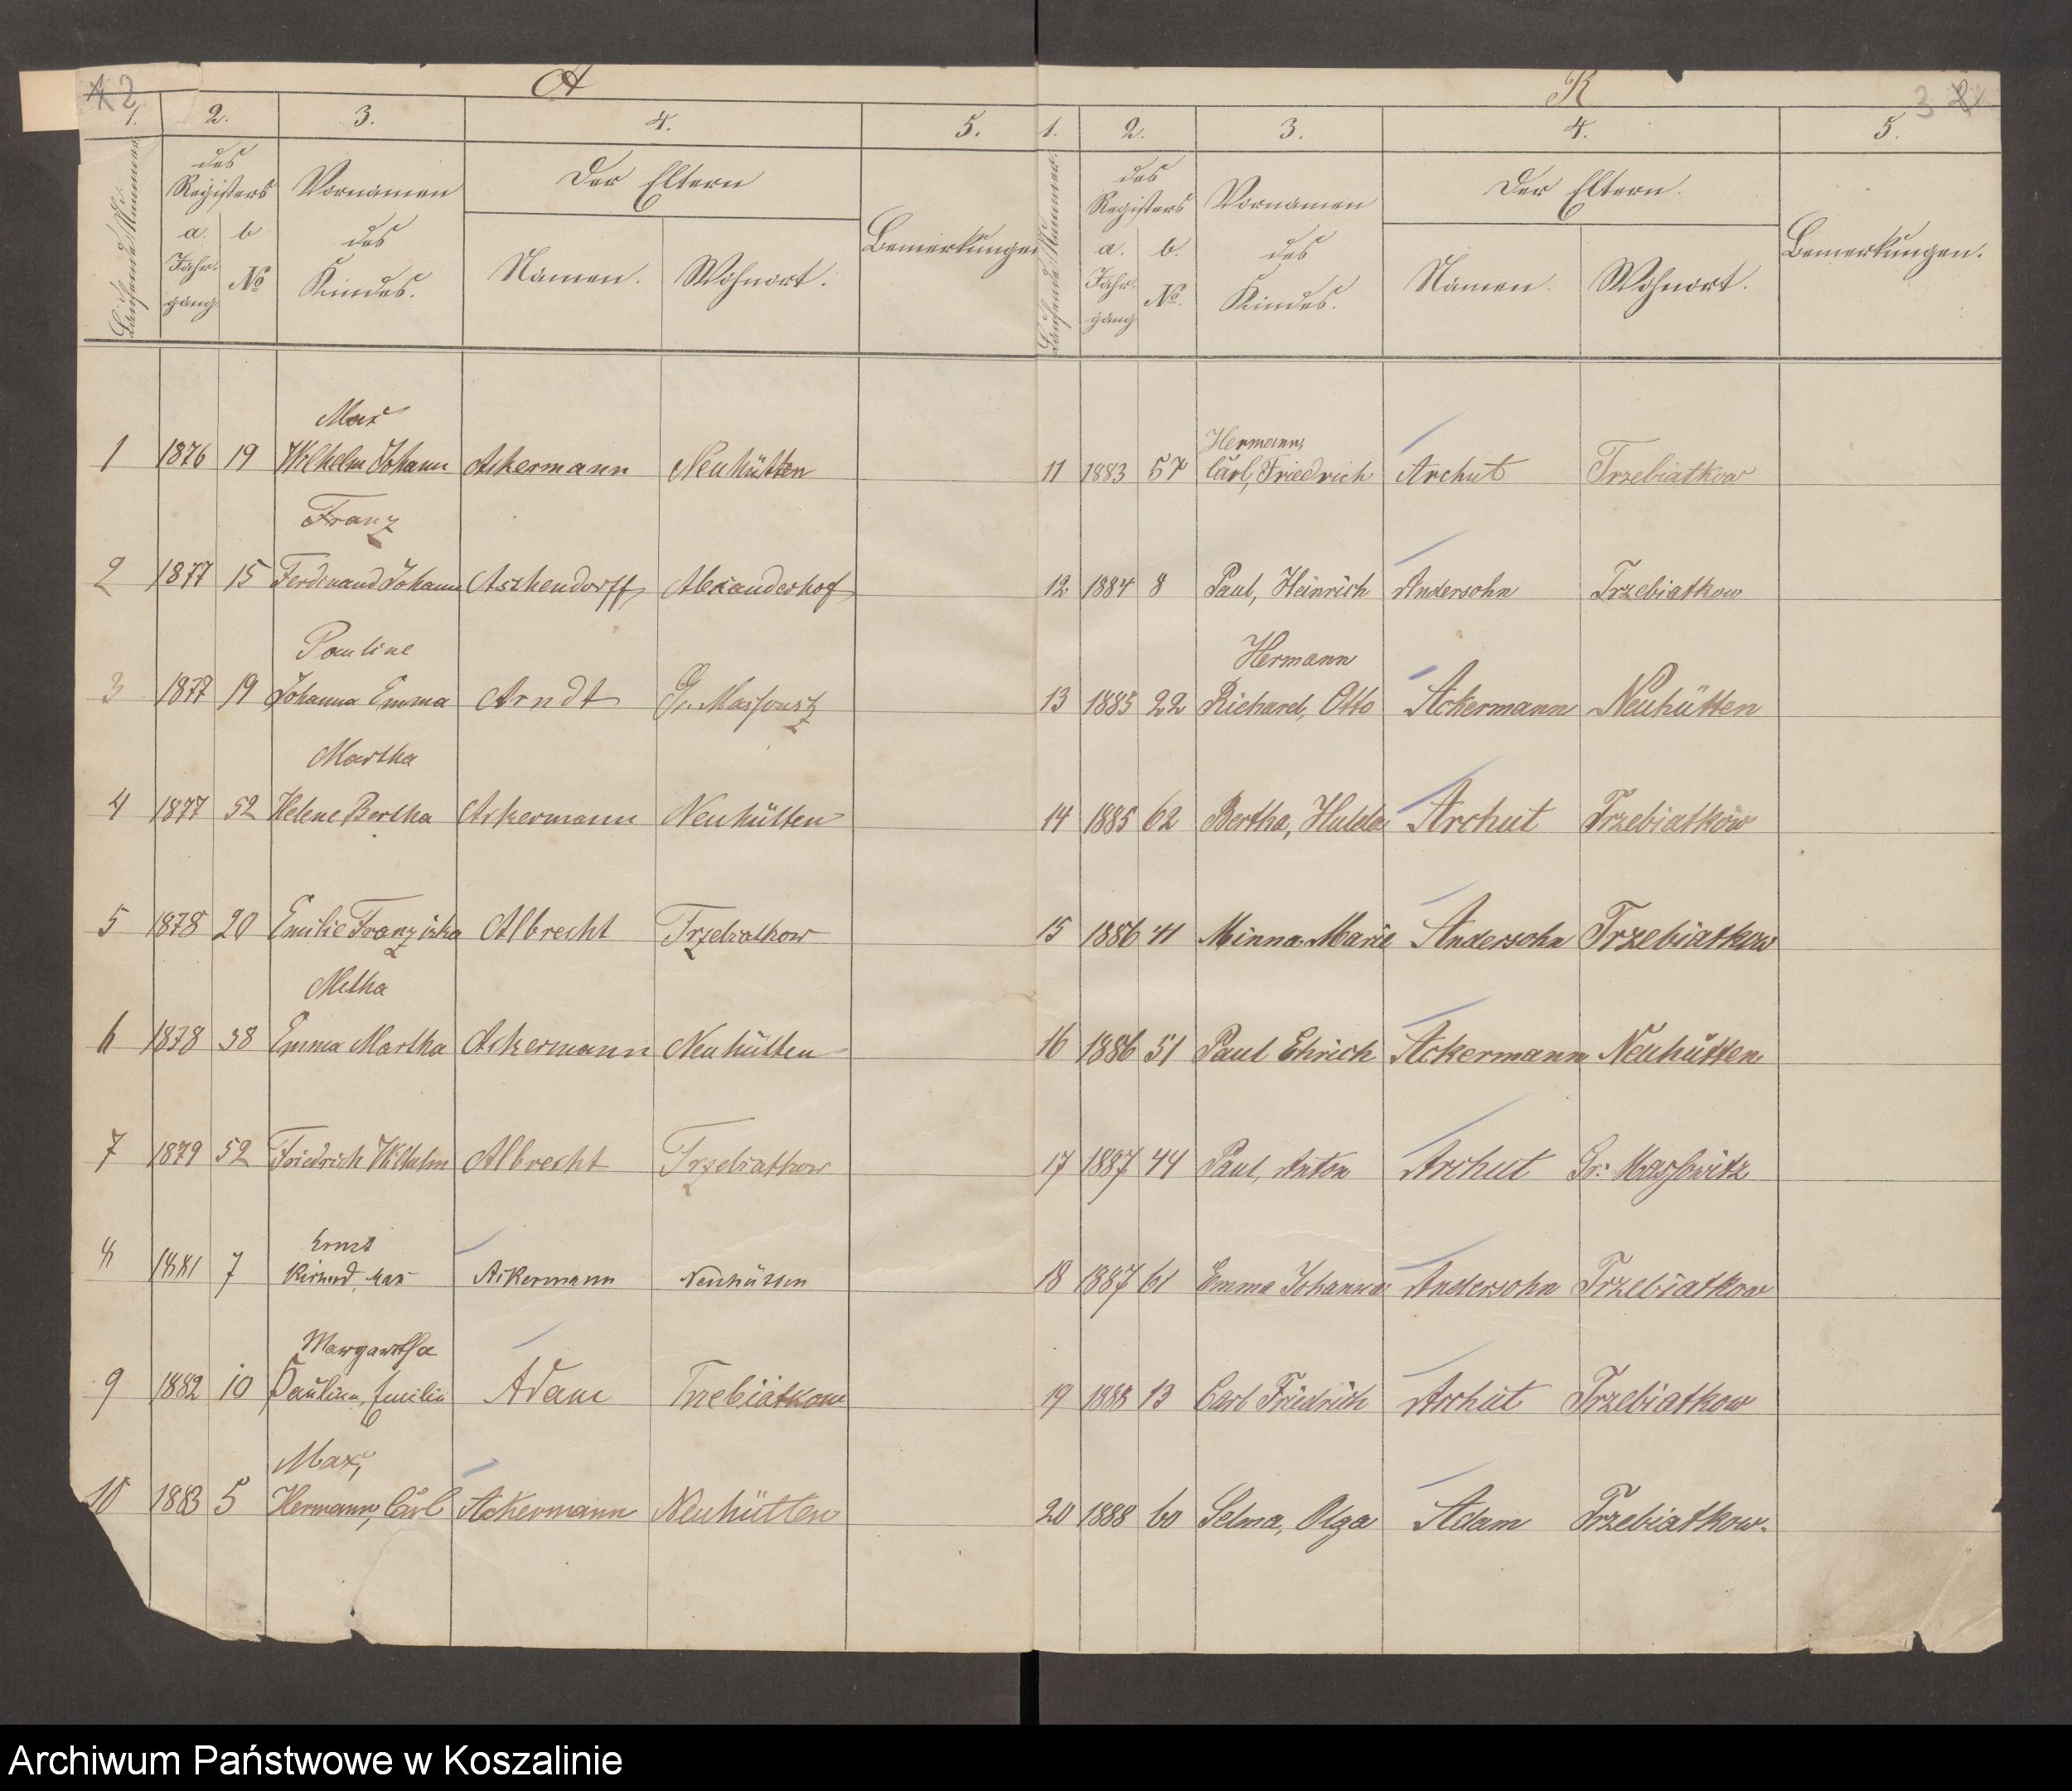 2
A
1. 2. 3. 4. 5.
Laufende Nummer
des Registers
a. Jahrgang
b. No
Vornamen des Kindes.
Der Eltern
Namen. Wohnort.
Bemerkungen
Max
1 1876 19 Wilhelm Johann Ackermann Neuhütten
Franz
2 1877 15 Ferdinand Johann Aschendorff Alexanderhof
Pauline
3 1877 19 Johanna Emma Arndt Gr. Massowitz
Martha
4 1877 52 Helene Bertha Ackermann Neuhütten
5 1878 20 Emilie Franziska Albrecht Trzebiatkow
Metha
6 1878 38 Emma Martha Ackermann Neuhütten
7 1879 52 Friedrich Wilhelm Albrecht Trzebiatkow
Ernst
8 1881 7 Richard, Max Ackermann Neuhütten
Margaretha
9 1882 10 Pauline, Emilie Adam Trzebiatkow
Max,
10 1883 5 Hermann, Carl Ackermann Neuhütten
A
3
1. 2. 3. 4. 5.
Laufende Nummer.
des Registers
a. Jahrgang
b. No.
Vornamen des Kindes.
Der Eltern.
Namen. Wohnort.
Bemerkungen.
Hermann,
11 1883 57 Carl, Friedrich Archut Trzebiatkow
12 1884 8 Paul, Heinrich Andersohn Trzebiatkow
Hermann
13 1885 22 Richard, Otto Ackermann Neuhütten
14 1885 62 Bertha, Hulda Archut Trzebiatkow
15 1886 41 Minna Marie Andersohn Trzebiatkow
16 1886 51 Paul Ehrich Ackermann Neuhütten
17 1887 44 Paul, Anton Archut Gr. Massowitz
18 1887 61 Emma Johanna Andersohn Trzebiatkow
19 1888 13 Carl Friedrich Archut Trzebiatkow
20 1888 60 Selma, Olga Adam Trzebiatkow.
Archiwum Państwowe w Koszalinie